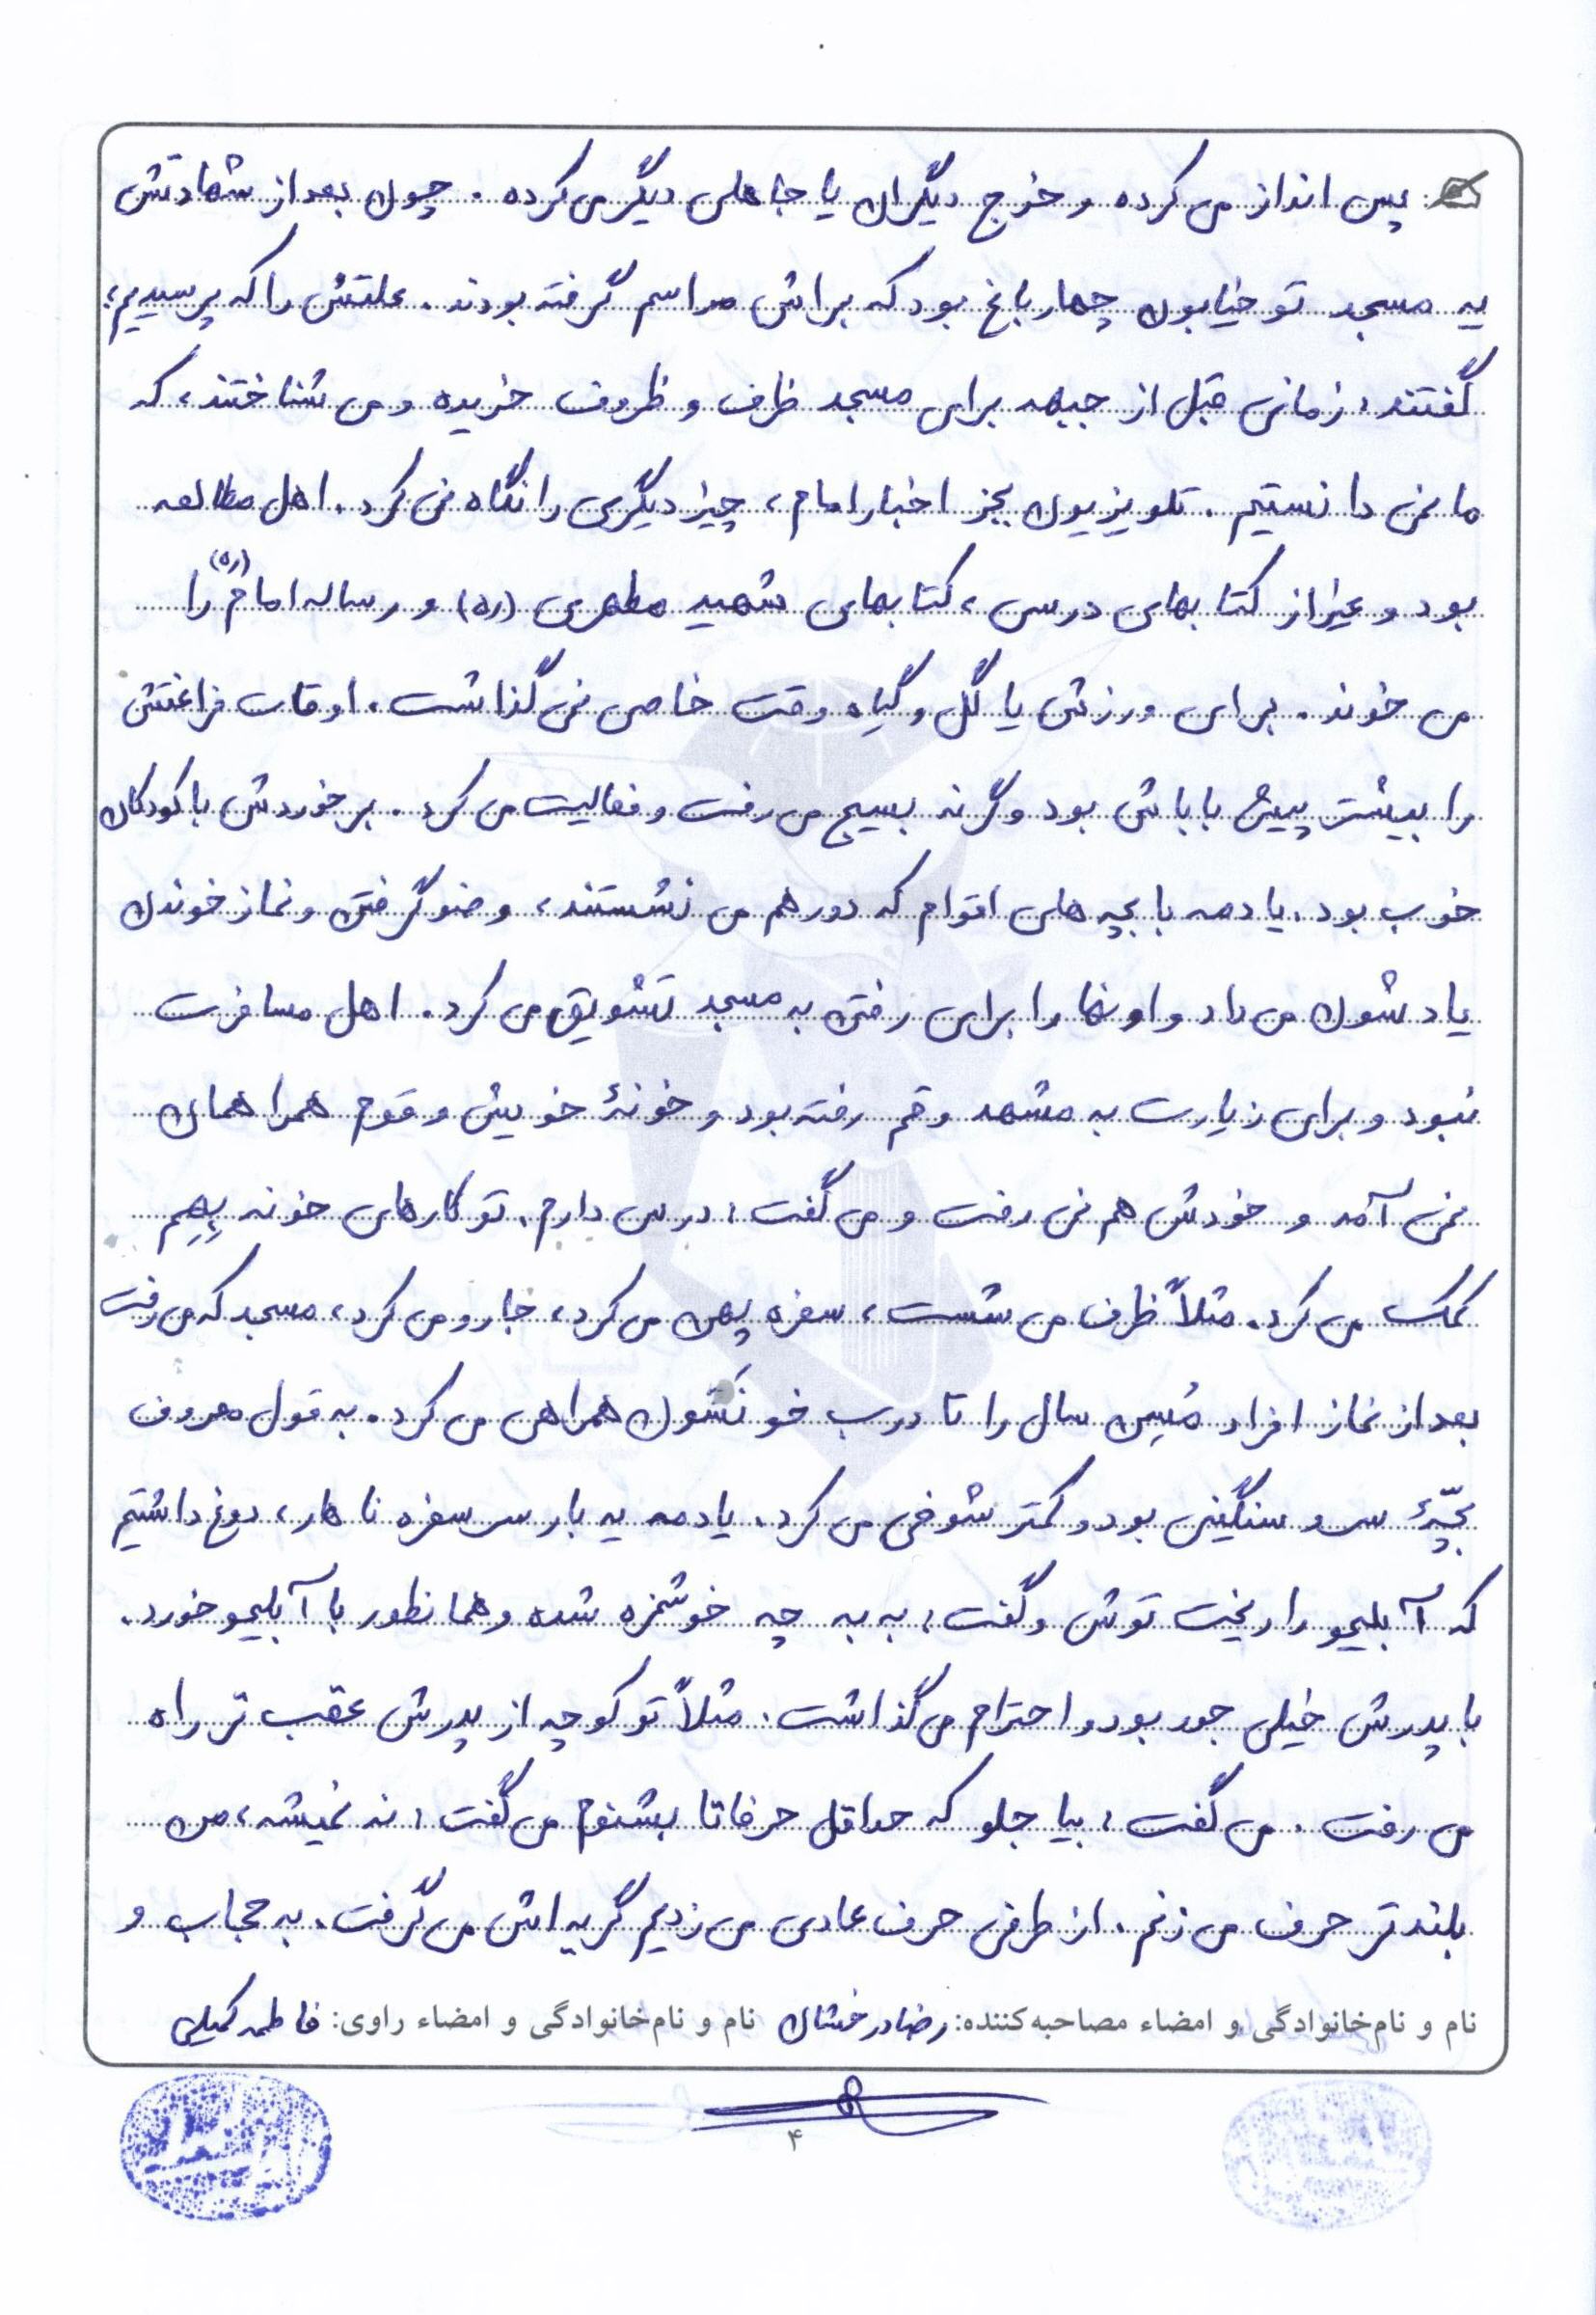 پس انداز می کرده و خرج دیگران یا جاهای دیگر می کرده . چون بعد از شهادتش
یه مسجد تو خیابون چهارباغ بود که براش مراسم گرفته بودند . علتش را که پرسیدیم؛
گفتند: زمانی قبل از جبهه برای مسجد ظرف و ظروف خریده و می شناختند، که
ما نمی دانستیم . تلویزیون بجز اخبار امام ، چیز دیگری را نگاه نمی کرد . اهل مطالعه
بود و غیر از کتابهای درسی ، کتابهای شهید مطهری (ره) و رساله امام (ره) را
می خوند . برای ورزش یا گل و گیاه وقت خاصی نمی گذاشت . اوقات فراغتش
را بیشتر پیش باباش بود وگرنه بسیج می رفت و فعالیت می کرد . برخوردش با کودکان
خوب بود . یادمه با بچه های اقوام که دور هم می نشستند ، وضو گرفتن و نماز خوندن
یادشون می داد و اونها را برای رفتن به مسجد تشویق می کرد . اهل مسافرت
نبود و برای زیارت به مشهد و قم رفته بود و خونۀ خویش و قوم همراهمان
نمی آمد و خودش هم نمی رفت و می گفت : درس دارم . تو کارهای خونه بهِم
کمک می کرد . مثلاً ظرف می شست ، سفره پهن می کرد ، جارو می کرد ، مسجد که می رفت
بعد از نماز افراد مُسِن سال را تا درب خونَشون همراهی می کرد . به قول معروف
بچّۀ سر و سنگینی بود و کمتر شوخی می کرد . یادمه یه بار سر سفره ناهار ، دوغ داشتیم
که آبلیمو را ریخت توش و گفت : به به چه خوشمزه شده و همانطور با آبلیمو خورد .
با پدرش خیلی جور بود و احترام می گذاشت . مثلاً تو کوچه از پدرش عقب تر راه
می رفت . می گفت : بیا جلو که حداقل حرفاتا بشنوم می گفت : نه نمیشه ، من
بلندتر حرف می زنم . از طرفی حرف عادی می زدیم گریه اش می گرفت . به حجاب و
نام و نام‌خانوادگی و امضاء مصاحبه‌کننده: رضا درخشان نام و نام‌خانوادگی و امضاء راوی: فاطمه کمیلی
۴